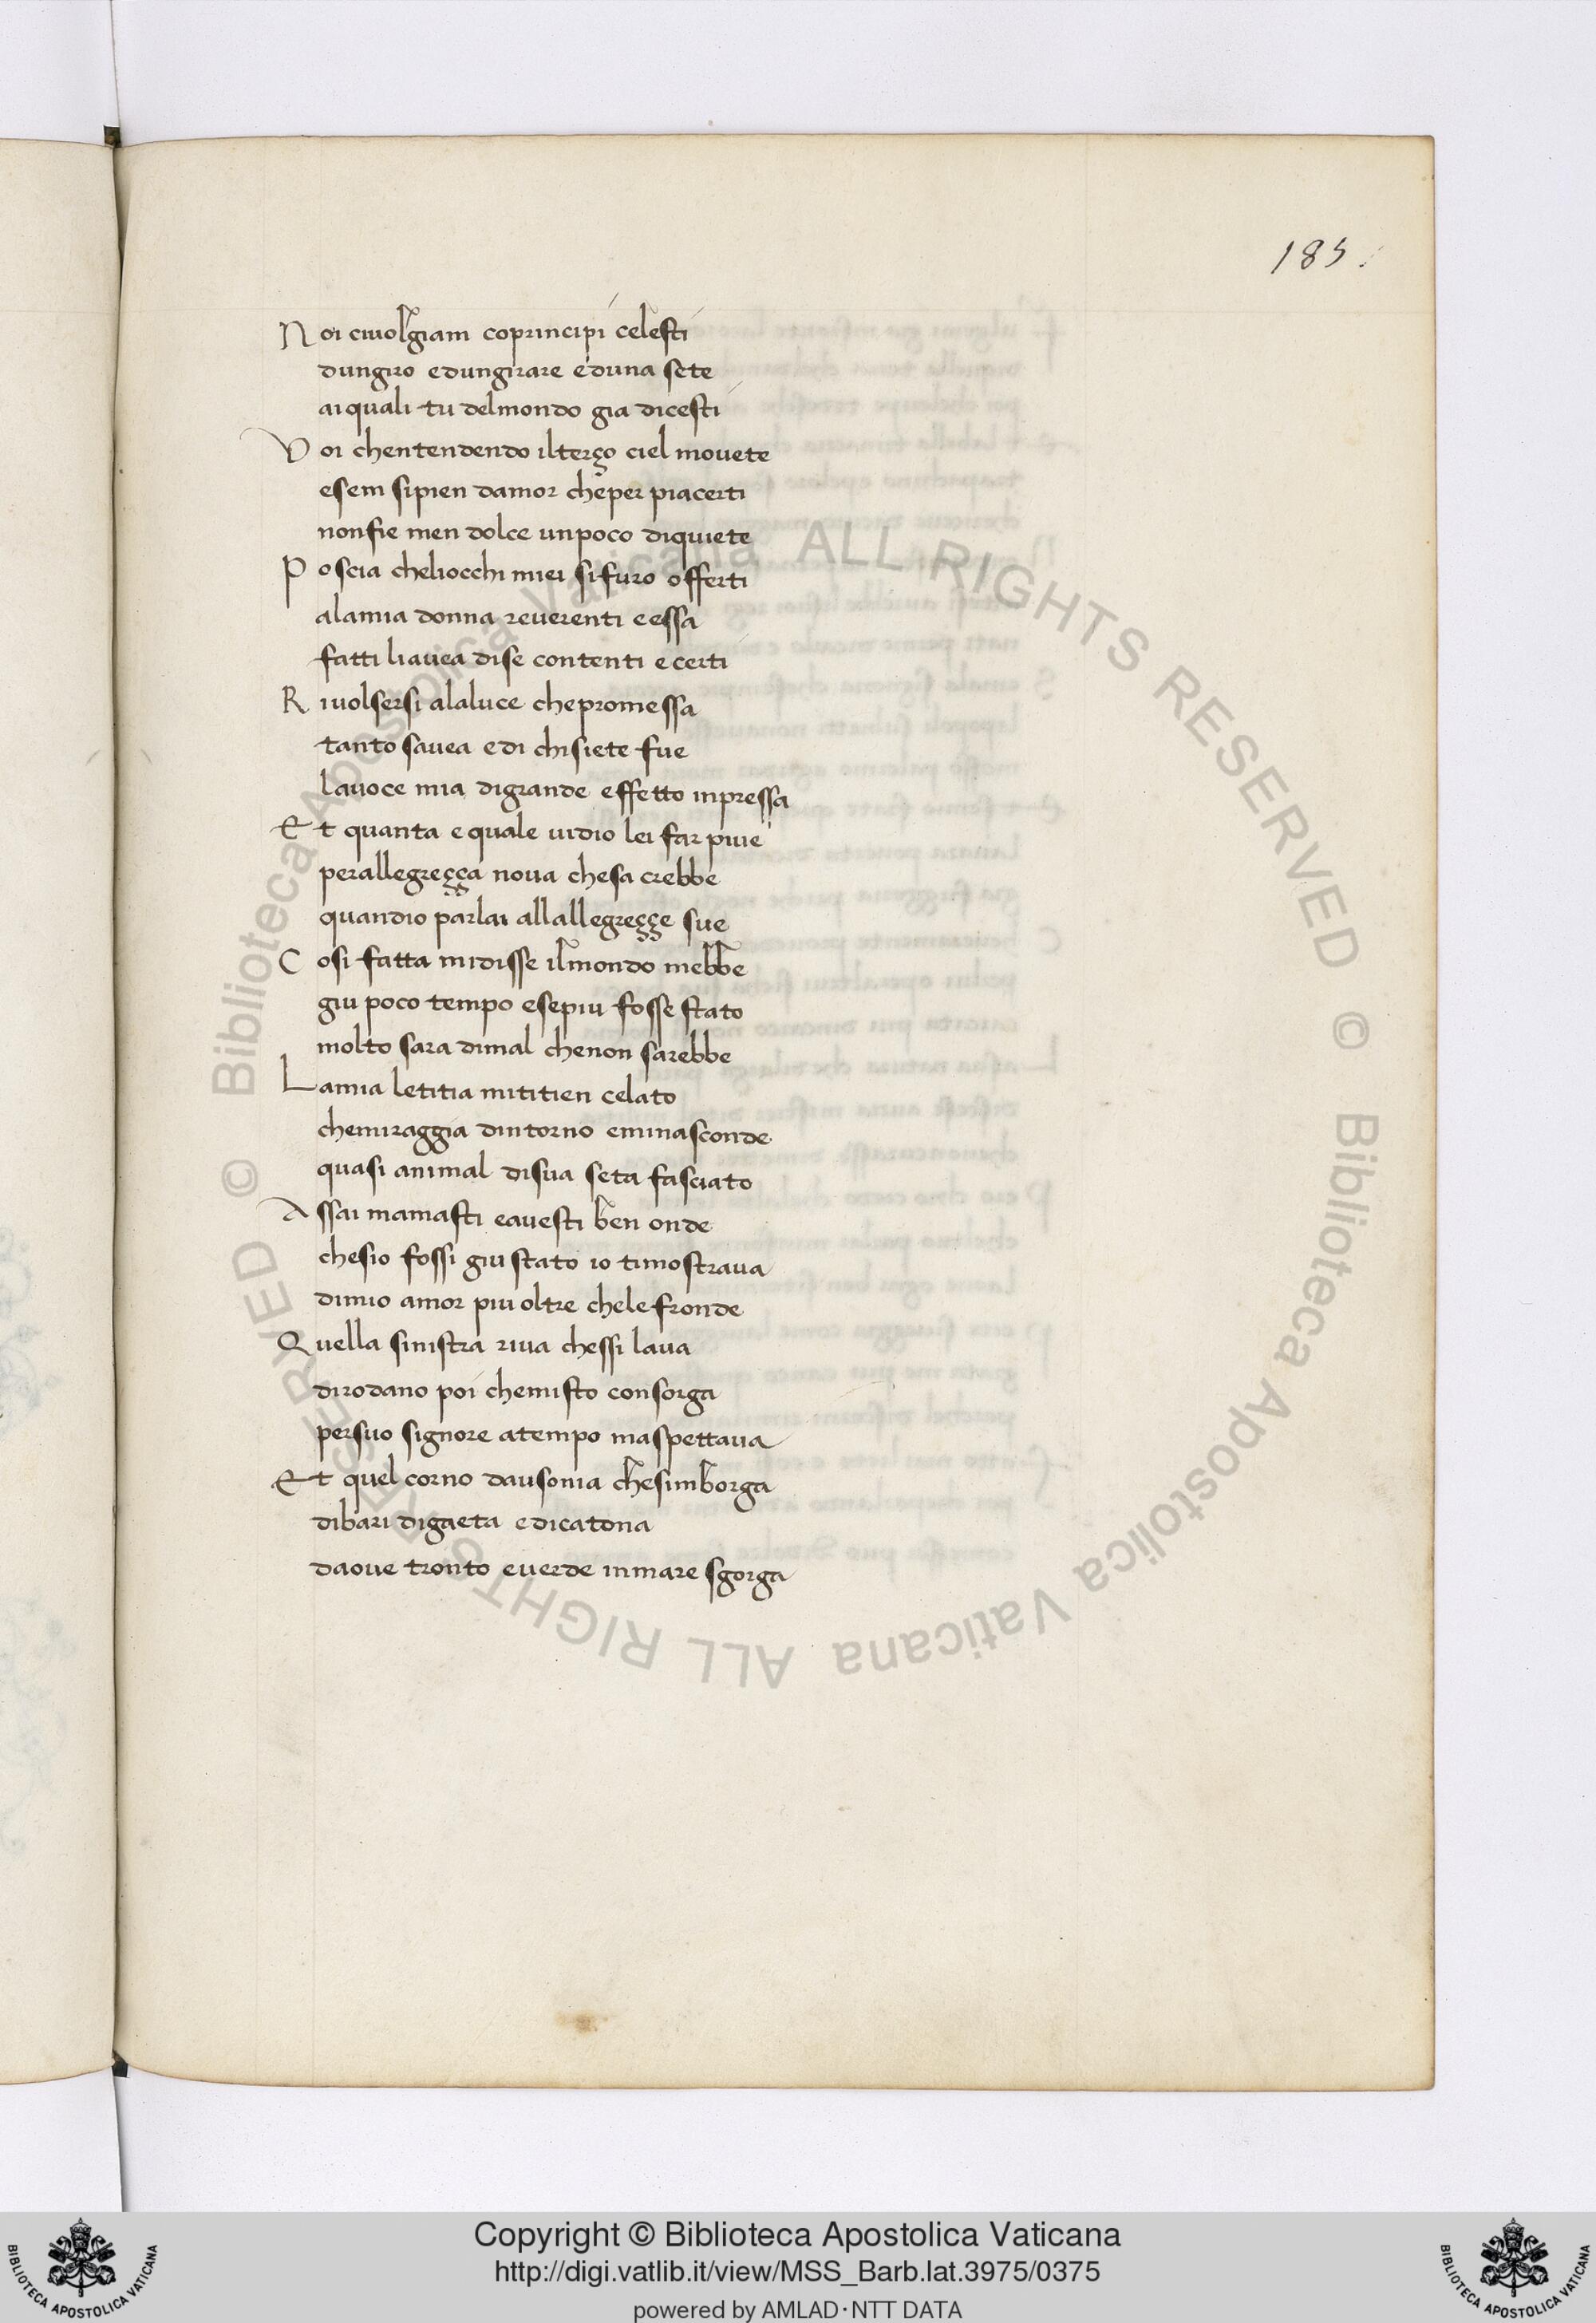 185.
Noi ciuolgiam coprincipi celesti
dungiro edungirare eduna sete
aiquali tu delmondo gia dicesti
Voi chentendendo ilterço ciel mouete
esem sipien damor cheper piacerti
nonfie men dolce unpoco diquiete
Poscia cheliocchi miei sifuro offerti
alamia donna reuerenti eessa
fatti liauea dise contenti ecerti
Riuolsersi alaluce chepromessa
tanto sauea edi chisiete fue
lauoce mia digrande effetto inpressa
Et quanta equale uidio lei far piue
perallegreçça noua chesa crebbe
quandio parlai allallegreççe sue
Cosi fatta midisse ilmondo mebbe
giu poco tempo esepiu fosse stato
molto sara dimal chenon sarebbe
Lamia letitia mititien celato
chemiraggia dintorno eminasconde
quasi animal disua seta fasciato
Assai mamasti eauesti ben onde
chesio fossi giu stato io timostraua
dimio amor piu oltre chele fronde
Quella sinistra riua chessi laua
dirodano poi chemisto consorga
persuo signore atempo maspettaua
Et quel corno dausonia chesimborga
dibari digaeta edicatona
daoue tronto euerde inmare sgorga
Copyright © Biblioteca Apostolica Vaticana
http://digi.vatlib.it/view/MSS_Barb.lat.3975/0375
powered by AMLAD·NTT DATA